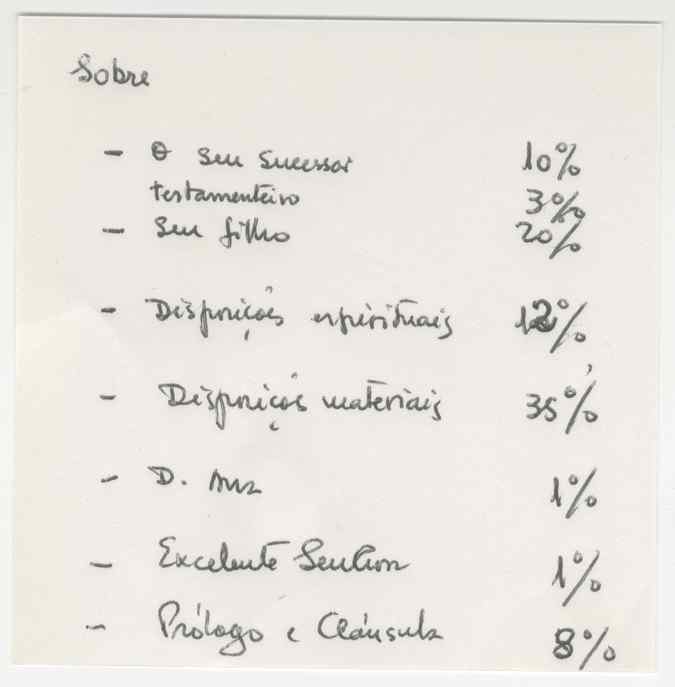 Sobre
- O seu sucessor 10%
testamenteiro 3%
- Seu filho 20%
- Disposições espirituais 12%
- Disposições materiais 35%
- D. Ana 1%
- Excelente Senhora 1%
- Prólogo e Cláusula 8%